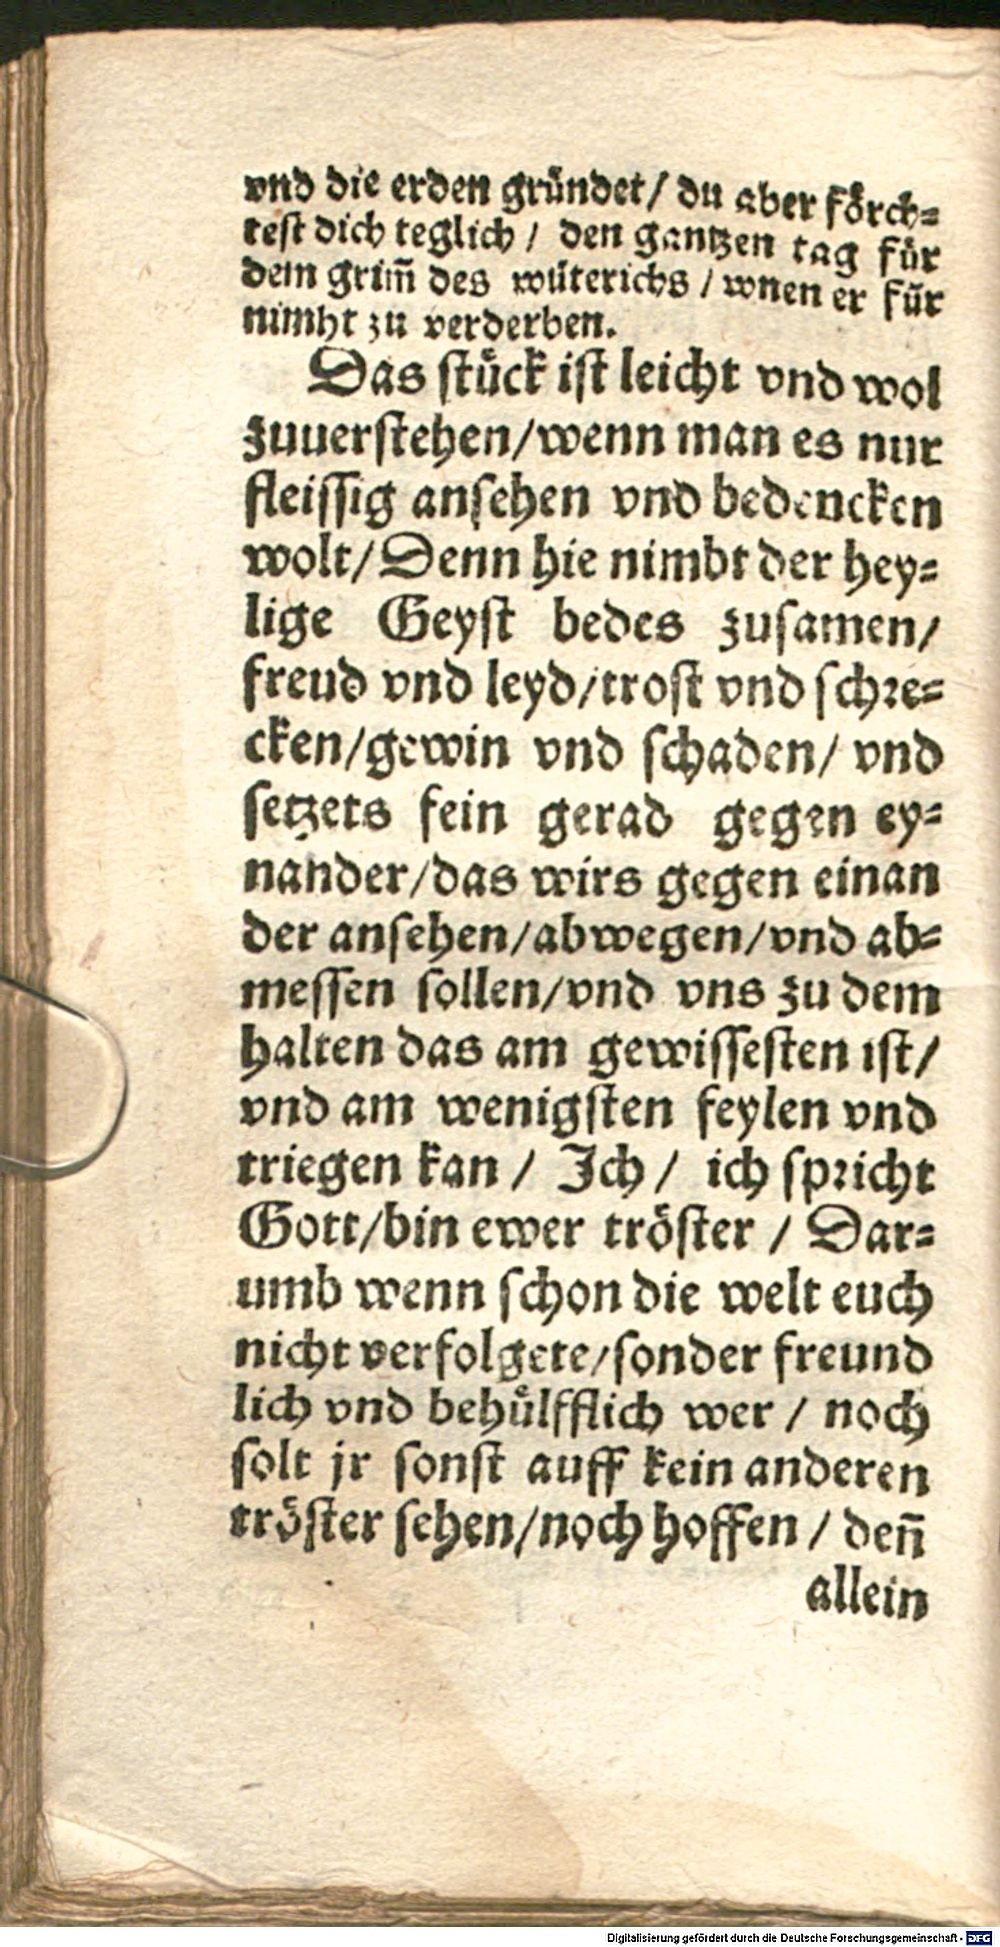 vnd die erden gründet/ du aber förch⸗
test dich teglich/ den gantzen tag für
dem grim̃ des wüterichs/ wnen er für
nimbt zu verderben.
Das stück ist leicht vnd wol
zuuerstehen/wenn man es nur
fleissig ansehen vnd bedencken
wolt/Denn hie nimbt der hey⸗
lige Geyst bedes zusamen/
freud vnd leyd/trost vnd schre⸗
cken/gewin vnd schaden/ vnd
setzets fein gerad gegen ey⸗
nander/das wirs gegen einan
der ansehen/abwegen/vnd ab⸗
messen sollen/vnd vns zu dem
halten das am gewissesten ist/
vnd am wenigsten feylen vnd
triegen kan/ Ich/ ich spricht
Gott/bin ewer tröster/ Dar⸗
umb wenn schon die welt euch
nicht verfolgete/sonder freund
lich vnd behülfflich wer/ noch
solt jr sonst auff kein anderen
tröster sehen/noch hoffen/ deñ
allein
Digitalisierung gefördert durch die Deutsche Forschungsgemeinschaft - DFG